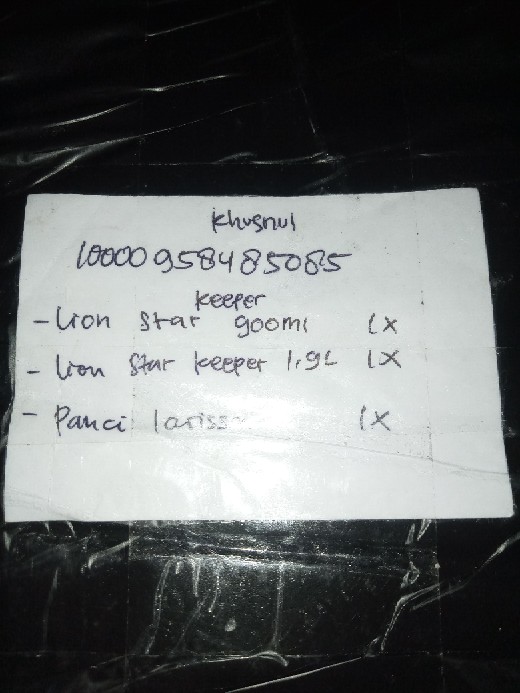 Khusnul
100009584 85085
keeper
- Lion Star 900ml 1x
- Lion Star keeper 1,9L 1x
- Panci larissa 1x